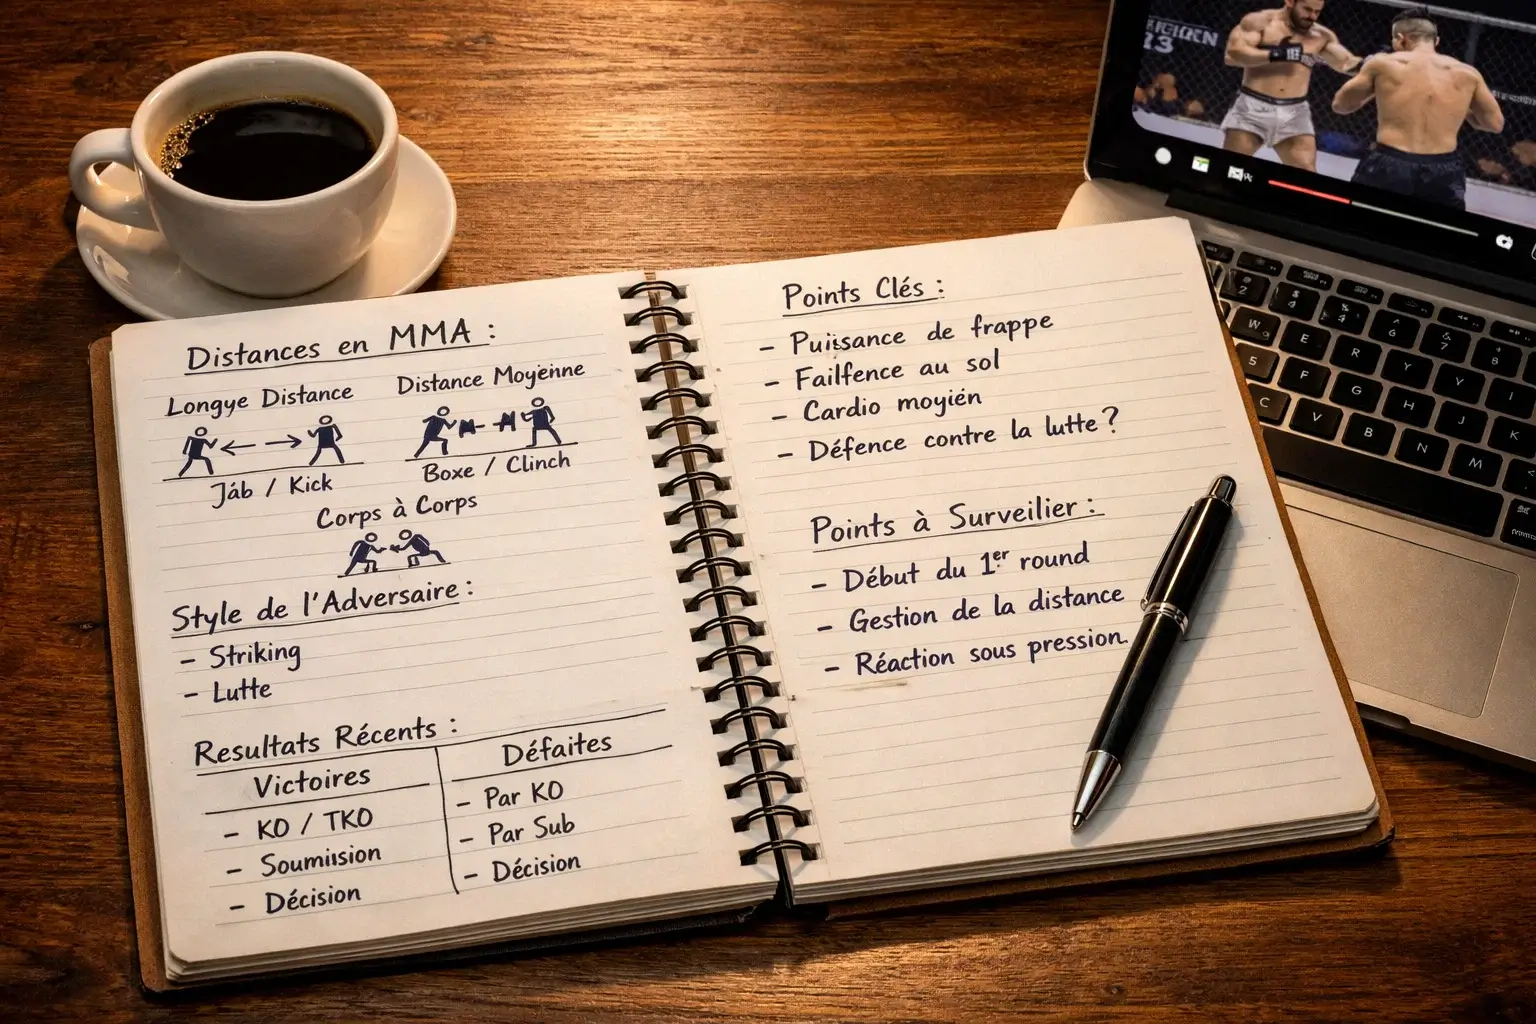 Distances en MMA :
Longye Distance
Distance Moyenne
Jáb / Kick
Boxe / Clinch
Corps à Corps
Style de l'Adversaire :
- Striking
- Lutte
Resultats Récents :
Victoires
- KO / TKO
- Soumission
- Décision
Défaites
- Par KO
- Par Sub
- Décision
Points Clés :
- Puissance de frappe
- Failfence au sol
- Cardio moyién
- Défence contre la lutte ?
Points à Surveilier :
- Début du 1er round
- Gestion de la distance
- Réaction sous pression.